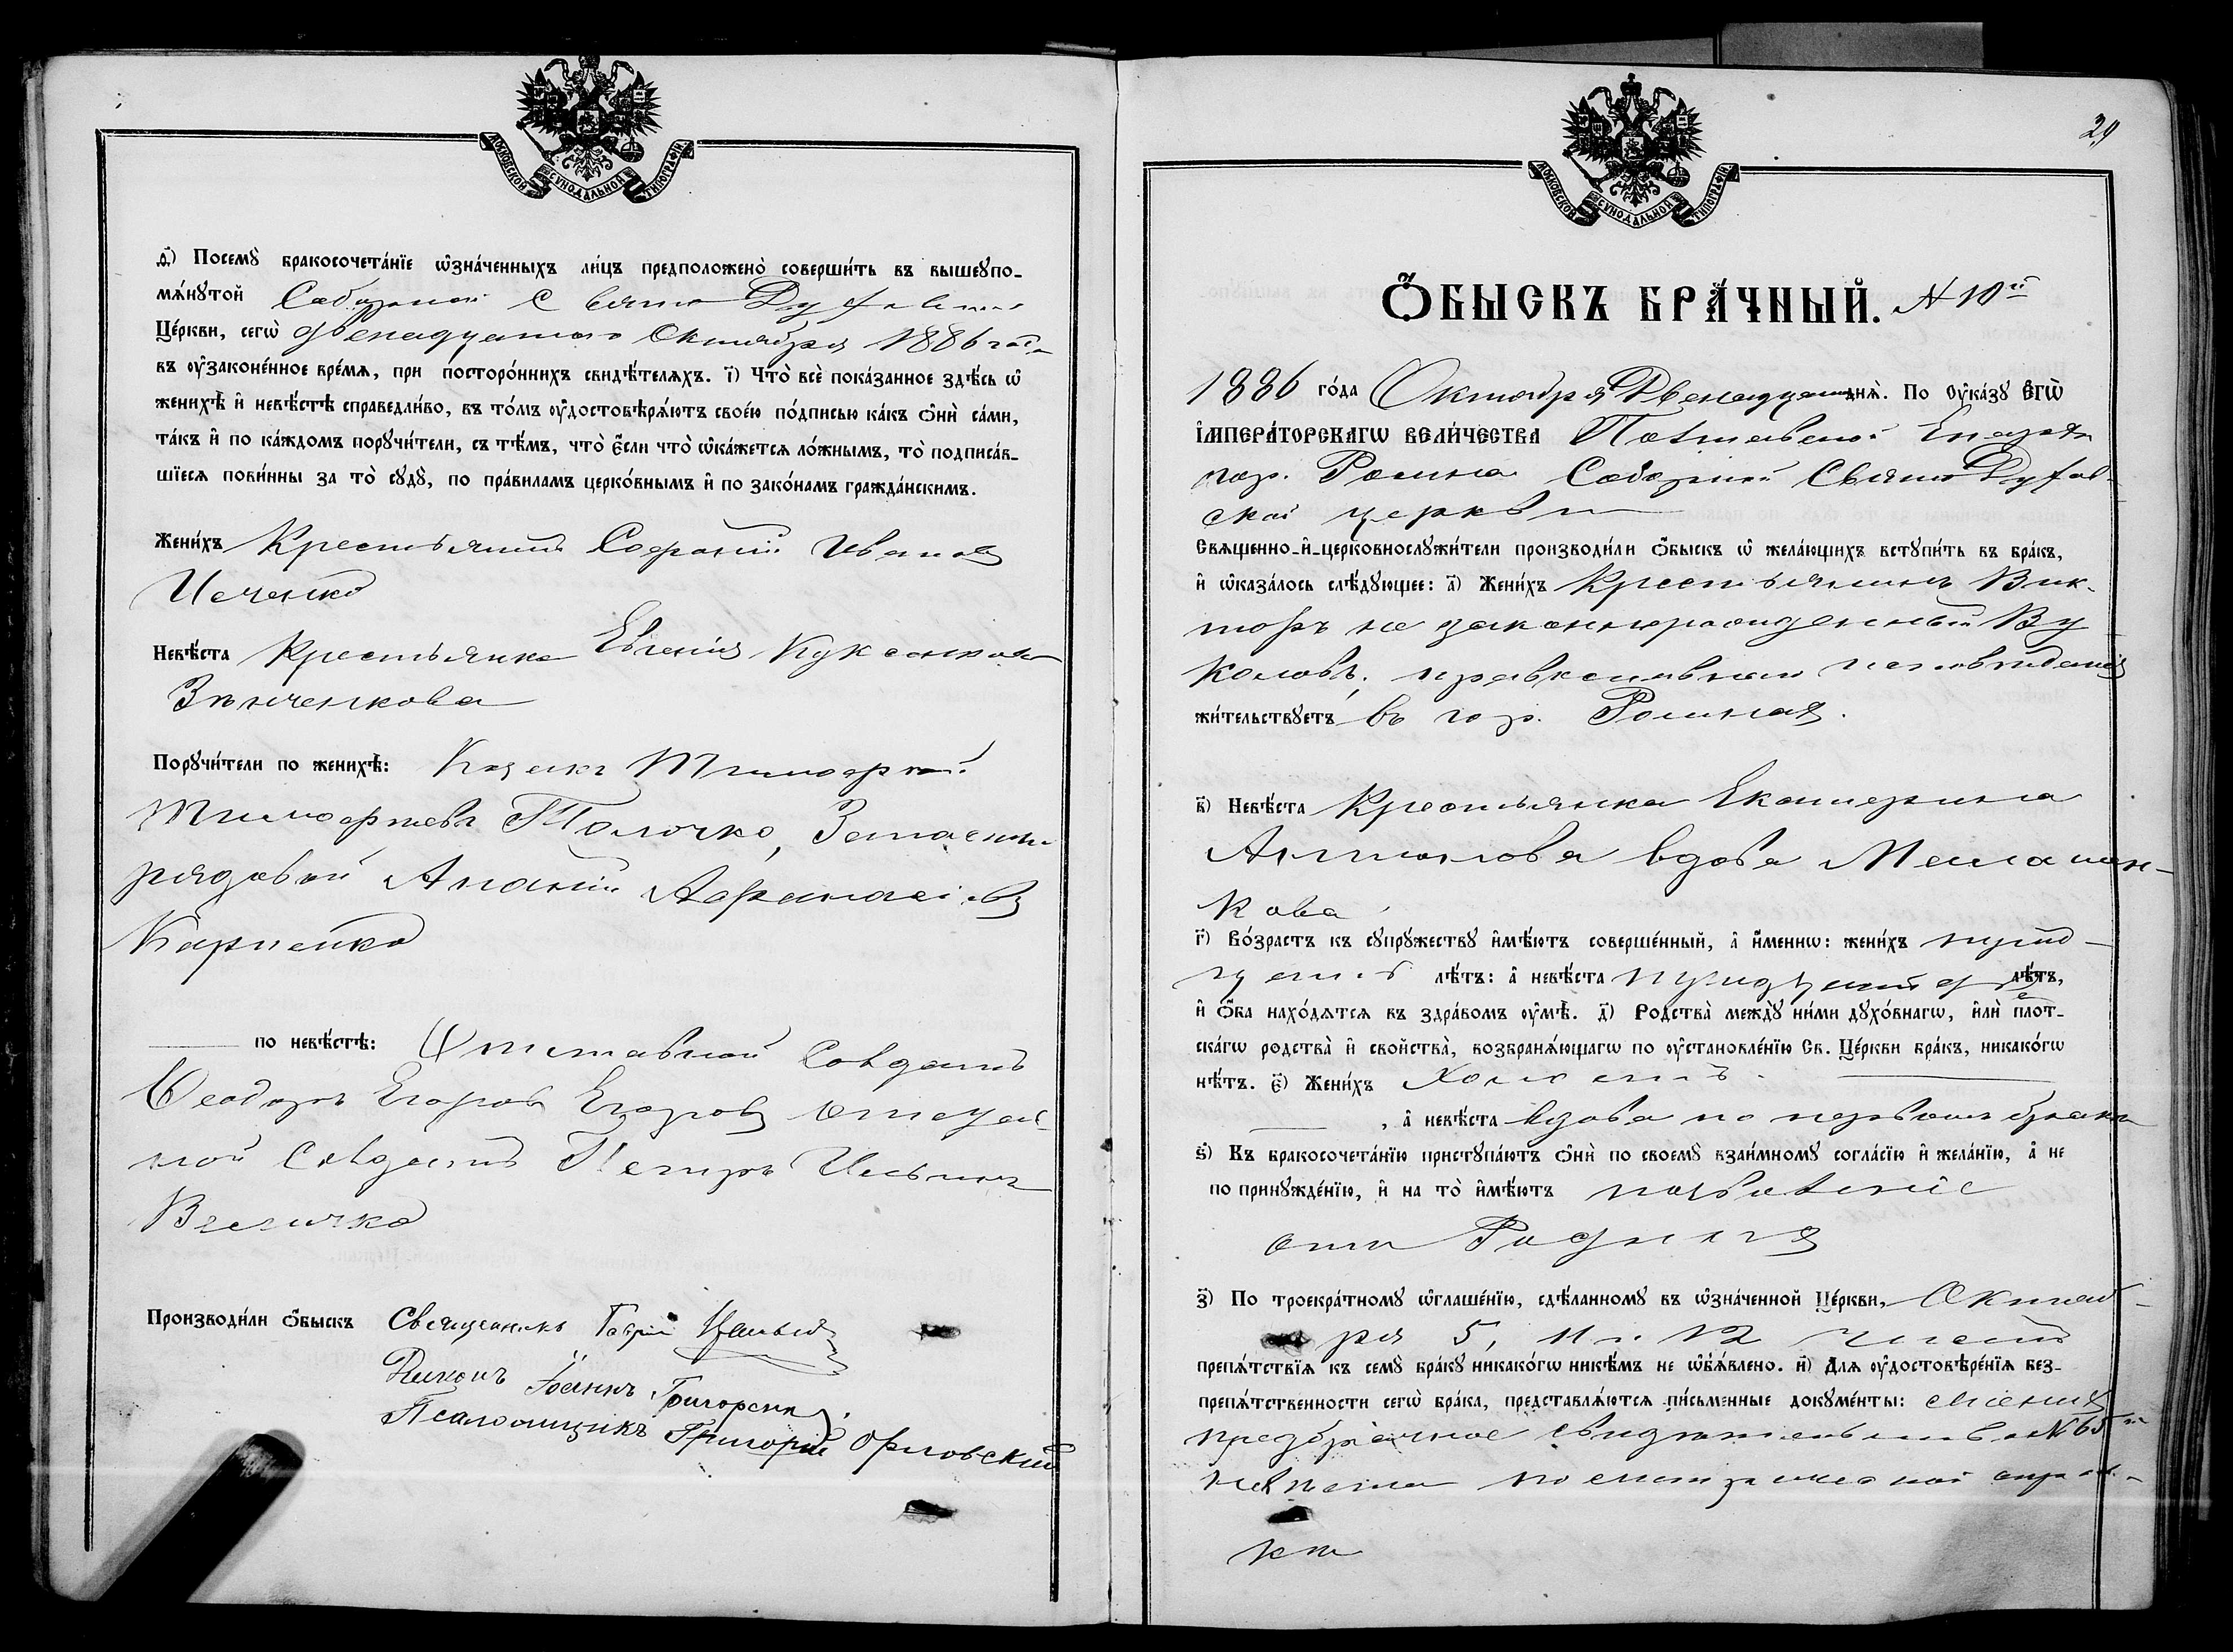 МОСКОВСКОЙ СУНОДАЛЬНОЙ ТИПОГРАФІИ
ѳ҃) Посемꙋ̀ бракосочета́нїе ѡ҆зна́ченныхъ ли́цъ предположено̀ соверши́ть въ вышеꙋпо-
мѧ́нꙋтой Соборной Свято Духовской
Це́ркви, сегѡ̀ двенадцатого Октября 1886 года
въ ᲂу҆законе́нное вре́мѧ, при посторо́ннихъ свидѣ́телѧхъ. і҃) Что̀ всѐ пока́занное здѣ́сь ѡ҆
женихѣ̀ и҆ невѣ́стѣ справедли́во, въ то́мъ ᲂу҆достовѣрѧ́ютъ свое́ю по́дписью ка́къ ѻ҆нѝ са́ми,
та́къ и҆ по ка́ждомъ порꙋчи́тели, съ тѣ́мъ, что̀ є҆́сли что̀ ѡ҆ка́жетсѧ ло́жнымъ, то̀ подписа́в-
шїесѧ пови́нны за то̀ сꙋдꙋ̀, по пра́виламъ церко́внымъ и҆ по зако́намъ гражда́нскимъ.
Жени́хъ Крестьянинъ Софоній Ивановъ
Иченко
Невѣ́ста Крестьянка Евгенія
Зинченкова
Порꙋчи́тели по женихѣ̀: Козакъ Тимофей
Тимофеевъ Толочко, Запасный
рядовой Ананій Афанасіевъ
Карпенко
по невѣ́стѣ: Отставной Солдатъ
Ѳеодоръ Егоровъ Егоровъ отстав-
ной Солдатъ Петръ Ильинъ
Величко
Производи́ли ѻ҆́быскъ Священникъ Гавріилъ
Діяконъ Іоаннъ Григорсинъ
Псаломщикъ Григорій Орловскій
МОСКОВСКОЙ СУНОДАЛЬНОЙ ТИПОГРАФІИ
29
Ѻ҆́БЫСКЪ БРА́ЧНЫЙ. N 10й
1886 го́да Октября Двенадцат днѧ̀. По ᲂу҆ка́зꙋ Є҆гѡ̀
І҆мпера́торскагѡ Вели́чества Полтавской Епархіи
гор. Ромна Соборной Свято Духов-
ской церкви
Свѧщенно-и҆-церковнослꙋжи́тели производи́ли ѻ҆́быскъ ѡ҆ жела́ющихъ встꙋпи́ть въ бра́къ,
и҆ ѡ҆каза́лось слѣ́дꙋющее: а҃) Жени́хъ Крестьянинъ Вик-
торъ незаконнорожденный Ву
коловъ, православнаго исповѣданія
жи́тельствꙋетъ въ гор. Ромнахъ.
в҃) Невѣ́ста Крестьянка Екатерина
Антонова вдова
кова
г҃) Во́зрастъ къ сꙋпрꙋ́жествꙋ и҆мѣ́ютъ соверше́нный, а҆ и҆́меннѡ: жени́хъ трид-
цати лѣ́тъ: а҆ невѣ́ста тридцати лѣ́тъ,
и҆ ѻ҆́ба нахо́дѧтсѧ въ здра́вомъ ᲂу҆мѣ̀. д҃) Родства̀ междꙋ̀ ни́ми дꙋхо́внагѡ, и҆лѝ плот-
скагѡ родства̀ и҆ свойства̀, возбранѧ́ющагѡ по ᲂу҆становле́нїю Св. Це́ркви бра́къ, никако́гѡ
нѣ́тъ. є҃) Жени́хъ Холостъ
, а҆ невѣ́ста вдова по первомъ бракѣ
ѕ҃) Къ бракосочета́нїю пристꙋпа́ютъ ѻ҆нѝ по своемꙋ̀ взаи́мномꙋ согла́сїю и҆ жела́нїю, а҆ не
по принꙋжде́нїю, и҆ на то̀ и҆мѣ́ютъ позволеніе
отъ
з҃) По троекра́тномꙋ ѡ҆глаше́нїю, сдѣ́ланномꙋ въ ѡ҆зна́ченной Це́ркви, Октяб-
ря 5, 11 и 12 чиселъ
препѧ́тствїѧ къ семꙋ̀ бра́кꙋ никако́гѡ никѣ́мъ не ѡ҆б̾ѧ́влено. и҃) Длѧ ᲂу҆достовѣре́нїѧ без-
препѧ́тственности сегѡ̀ бра́ка, представлѧ́ютсѧ пи́сьменные докꙋме́нты: жениха
предбрачное свидѣтельство N 65
невѣста по метрической справ-
кѣ